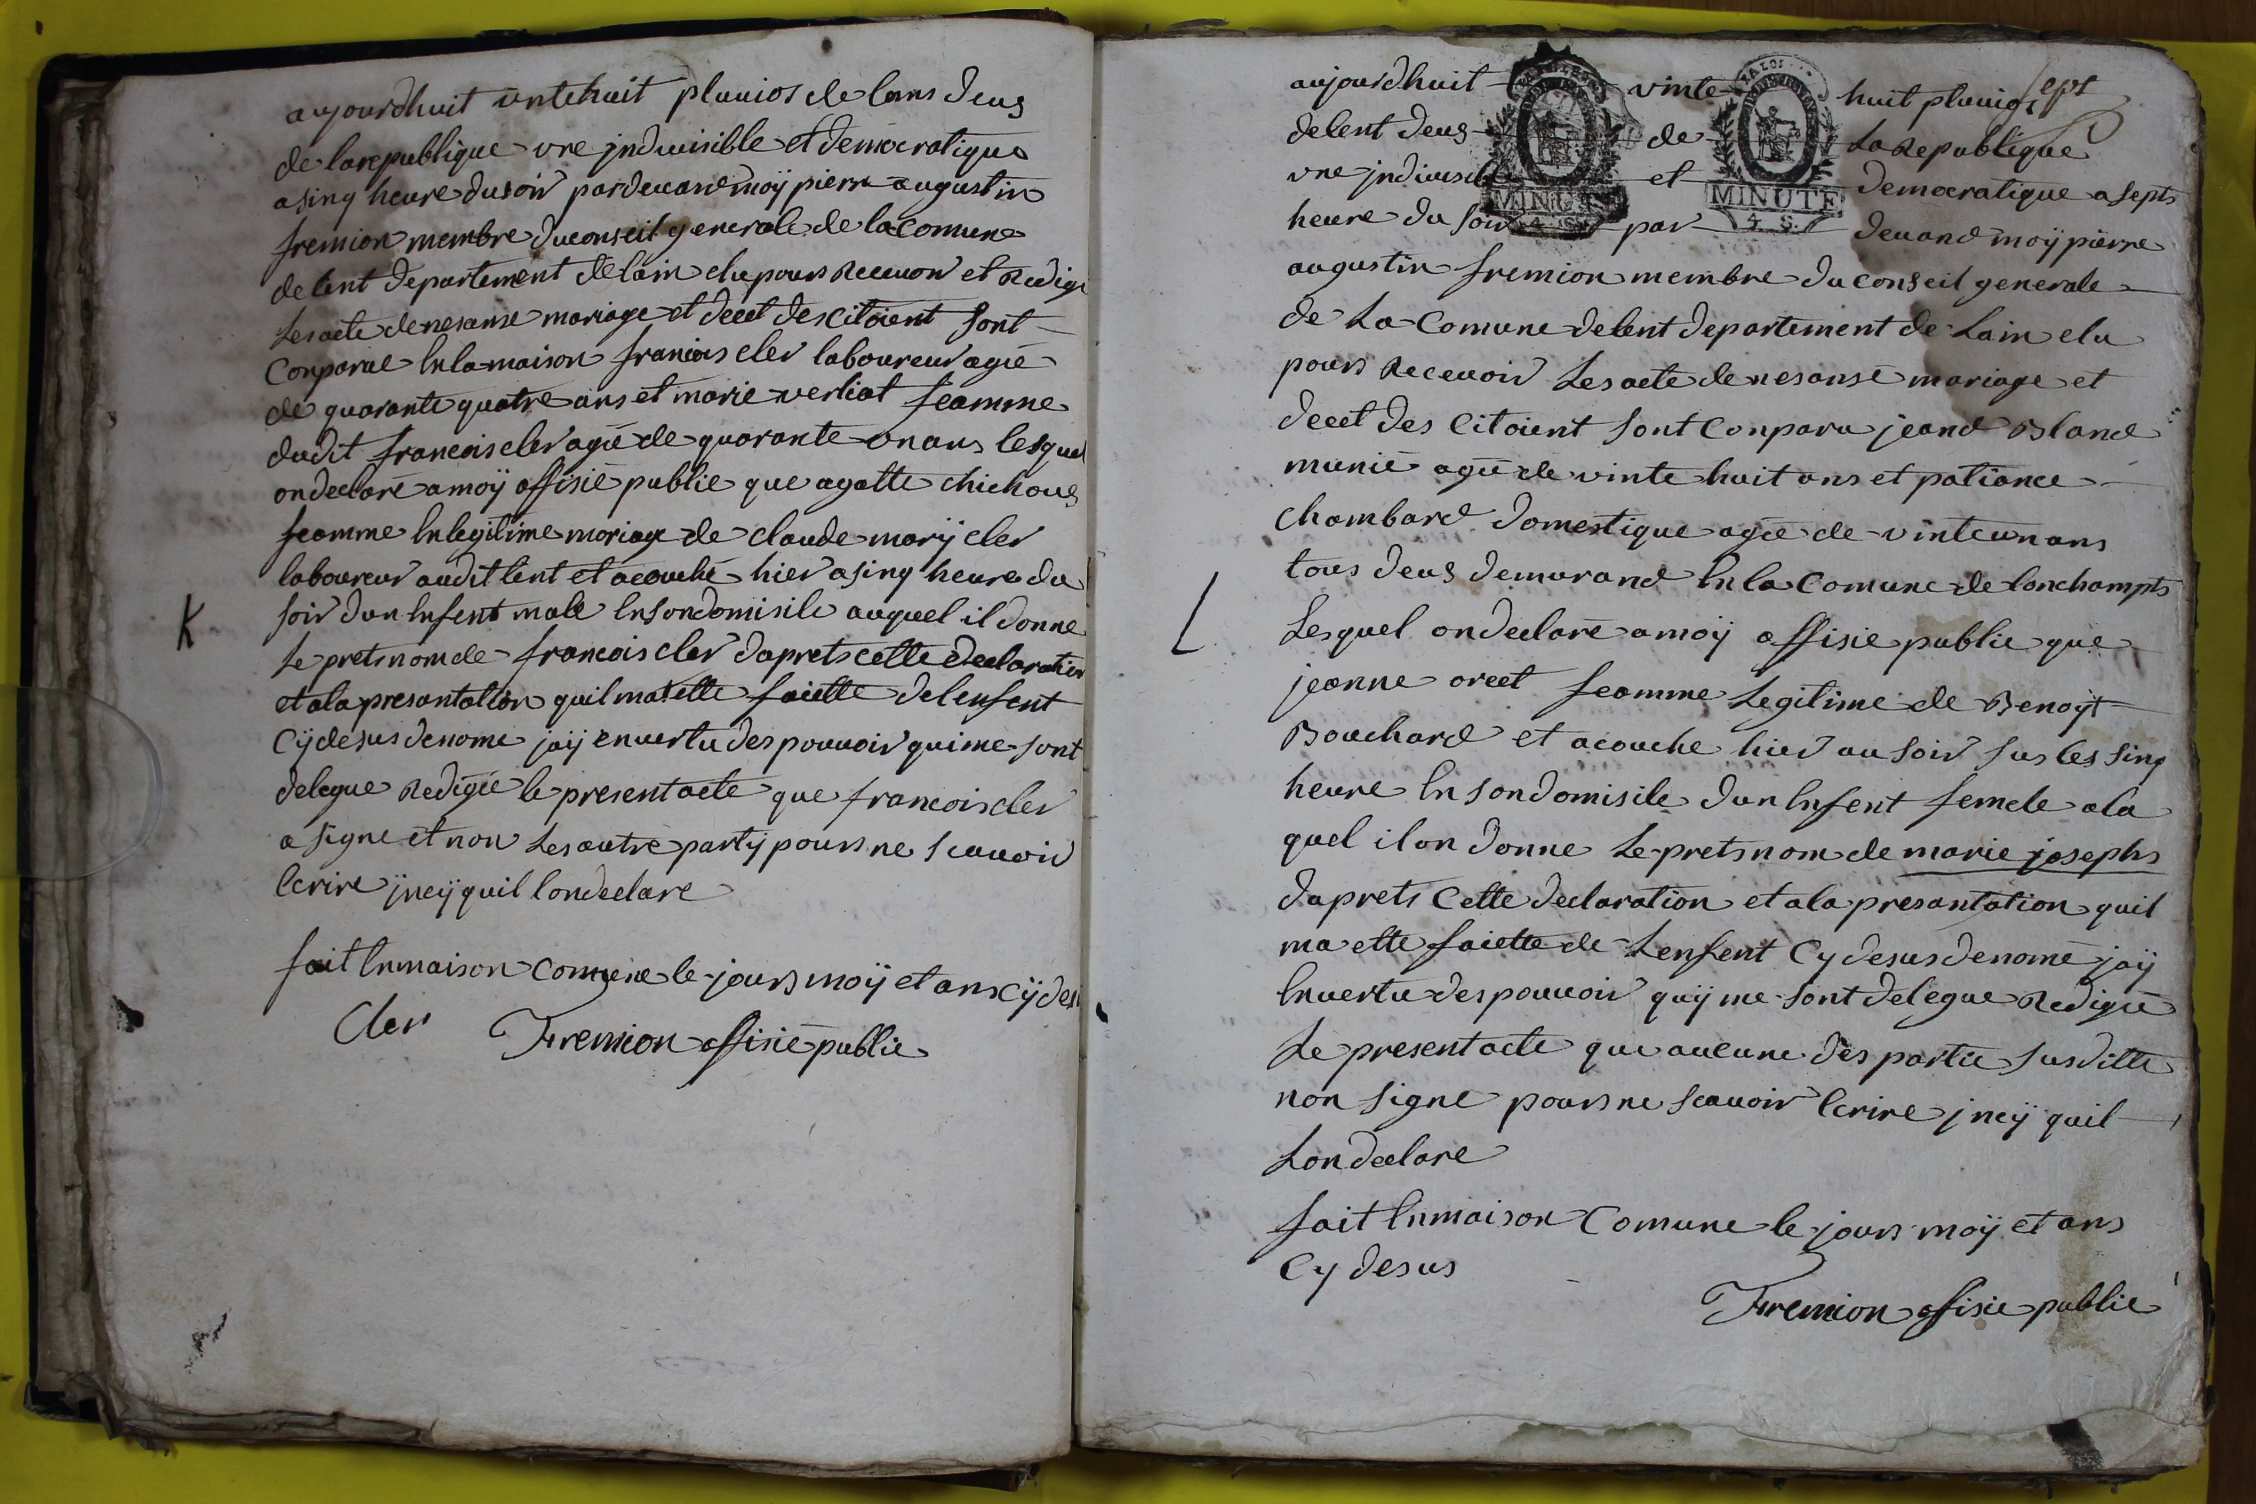 aujourdhuit vintehuit pluuios de lans deus
de larepublique vne jndiuisible et democratique
a sinq heure dusoir pardeuand moÿ pierre augustin
fremion membre duconseil generale de lacomune
delent departement de lain elupours Receuoir et Redige
Lesacte denesanse mariage et decet descitoient sont
Conparue Enlamaison francois cler laboureur agie
de quarante quatre ans et marie verliat feamme
dudit francois cler agie de quarante un ans lesquel
ondeclare amoÿ offisie publie que agatte chichous
feamme En legitime mariage de claude marÿ cler
laboureur audit lent et acouche hier asinq heure du
K
soir dun Enfent male Ensondomisile auquel il donne
Le prets nom de francois cler daprets cette declaration
et ala presantation quil ma ette faiette del enfent
Cÿ desus denome jaÿ en uertu des pouuoir qui me sont
delegue Redigie le present acte que francois cler
a signe et non Les autre partÿ pours ne scauoir
Ecrire jncÿ quil londeclare
fait Enmaison comune le jours moÿ et ans cÿ des
Cler Fremion offisie publie
sept
aujourdhuit vinte huit pluuios
delent deus de La Republique
vne jndiuisible et democratique a septs
heure du soir par deuand moÿ pierre
MINUTE
4. S.
MINUTE
4. S.
augustin fremion membre du conseil generale
de La Comune delent departement de Lain elu
pours Receuoir Les acte de nesanse mariage et
decet des Citoient sont Conparu jeand Bland
munié agie de vinte huit ans et patiance
chambard domestique agie de vinteunans
tous deus demurand En la Comune de lonchampts
L
Lesquel ondeclare amoÿ offisie publie que
jeanne orcet feamme Legitime de Benoÿt
Bouchard et acouche hier au soir sus les sinq
heure En son domisile dun Enfent femele ala
quel il on donne Le prets nom de marie josephs
daprets Cette declaration et ala presantation quil
ma ette faiette de Lenfent Cy desus denome jaÿ
Enuertu des pouuoir quÿ me sont delegue Redigie
Le present acte que aucune des partie susditte
non signe pours ne scauoir Ecrire jncÿ quil
Londeclare
fait Enmaison Comune le jours moÿ et ans
Cy desus
Fremion offisie publie